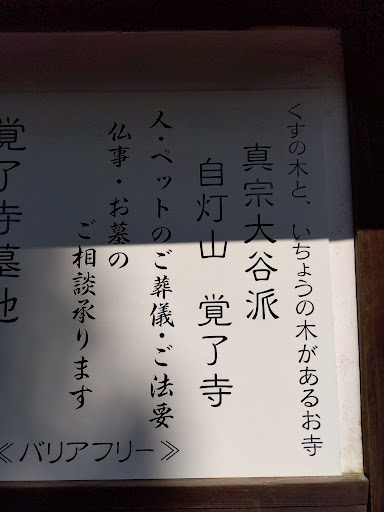 くすの木と、いちょうの木があるお寺
真宗大谷派
自灯山 覚了寺
人・ペットのご葬儀・ご法要
仏事・お墓の
ご相談承ります
覚了寺墓地
≪バリアフリー≫